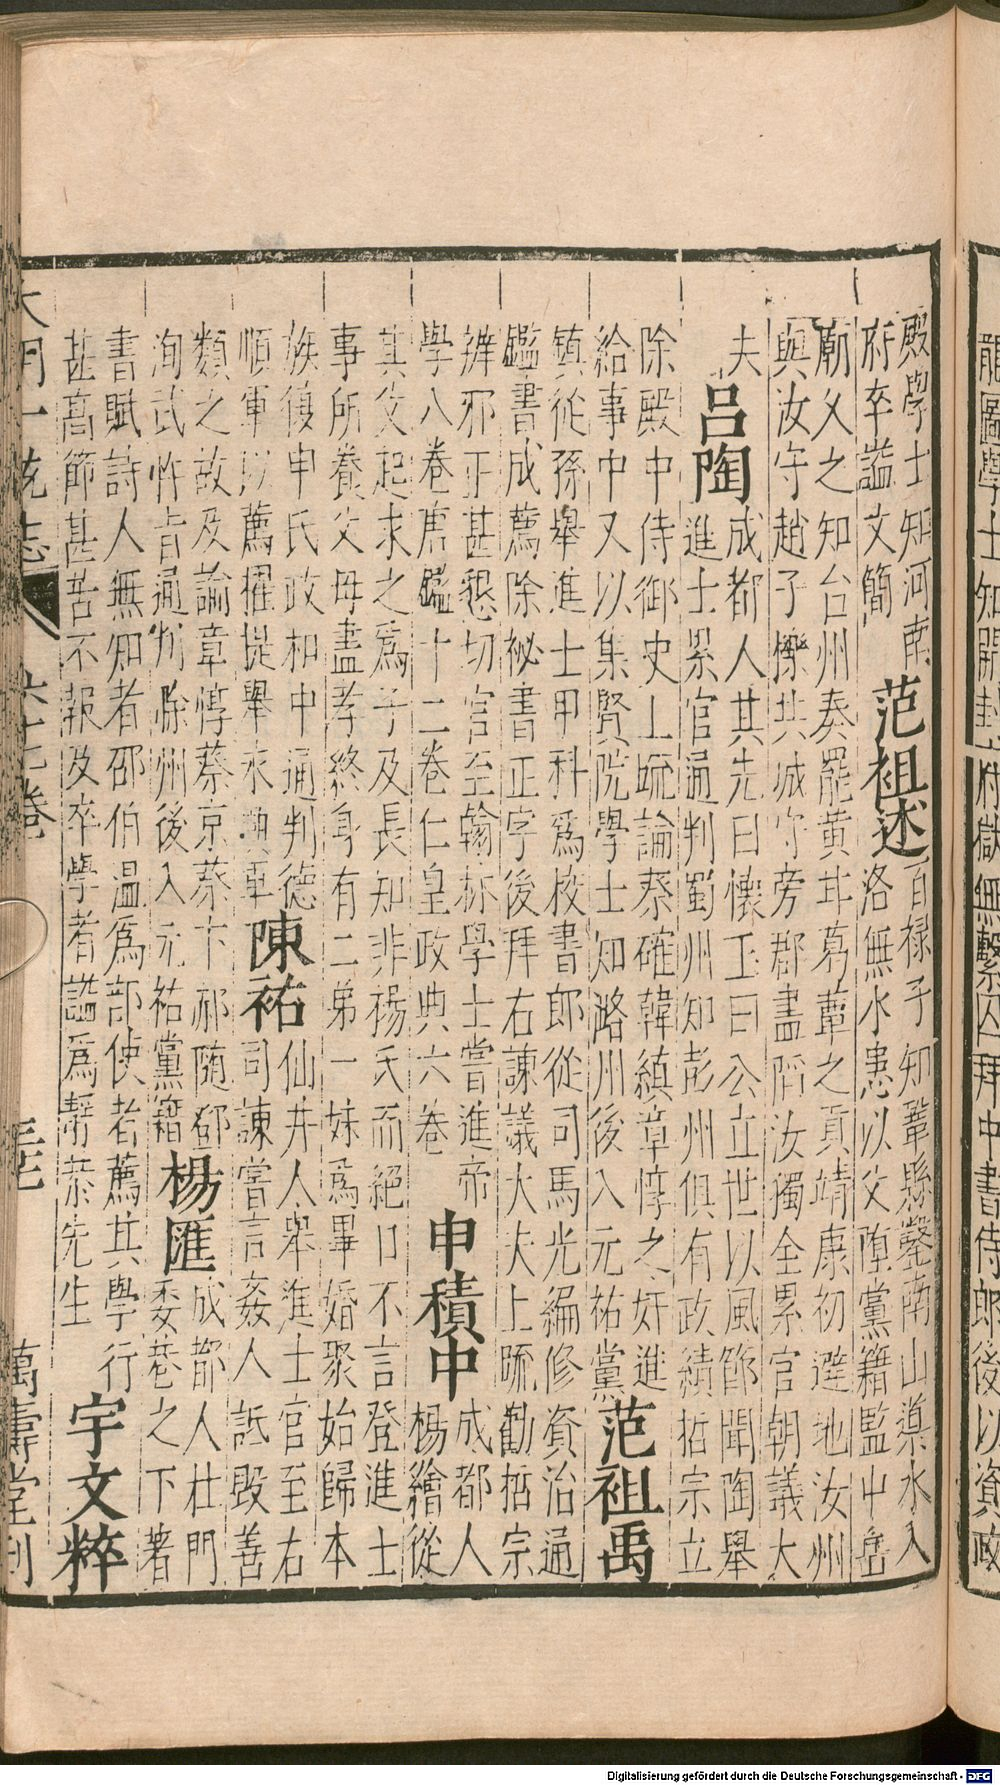 龍圖學士知開封府獄無繫囚拜中書侍郎後以資政
殿學士知河南
府卒謚文簡
范祖述
百祿子知鞏縣鑿南山導水入
洛無水患以父墮黨籍監中岳
廟父之知台州奏罷黃甘葛蕈之貢靖康初避地汝州
與汝守趙子櫟共城守旁郡盡陷汝獨全累官朝議大
夫
呂陶
成都人其先曰懷玉曰公立世以風節聞陶舉
進士累官通判蜀州知彭州俱有政績哲宗立
除殿中侍御史上疏論蔡確韓縝章惇之奸進
給事中又以集賢院學士知潞州後入元祐黨
范祖禹
鎮從孫舉進士甲科爲校書郎從司馬光編修資治通
鑑書成薦除祕書正字後拜右諫議大夫上疏勸哲宗
辨邪正甚懇切官至翰林學士嘗進帝
學八卷唐鑑十二卷仁皇政典六卷
申積中
成都人
楊繪從
其父起求之爲子及長知非楊氏而絕口不言登進士
事所養父母盡孝終身有二弟一妹爲畢婚聚始歸本
族復申氏政和中通判德
順軍以薦擢提舉永興軍
陳祐
仙井人舉進士官至右
司諫嘗言姦人詆毀善
類之故及論章惇蔡京蔡卞郝隨鄧
洵武忤旨通判滁州後入元祐黨籍
楊匯
成都人杜門
委巷之下著
書賦詩人無知者邵伯溫爲部使者薦其學行
甚高節甚苦不報及卒學者謚爲靜恭先生
宇文粹
大明一統志 六十七卷 萬壽堂刊
Digitalisierung gefördert durch die Deutsche Forschungsgemeinschaft - DFG